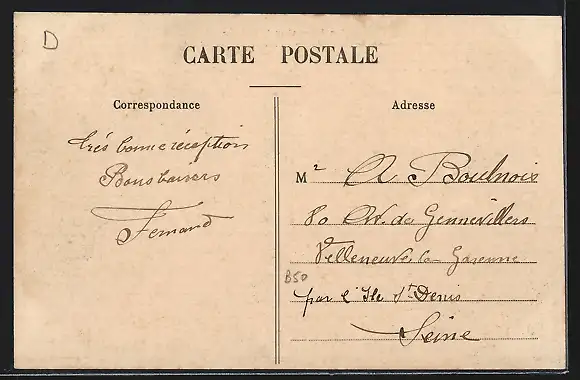 D
CARTE POSTALE
Correspondance
très bonne réception
Bons baisers
Fernand
Adresse
Mr A Boulnois
80 Av. de Gennevillers
Villeneuve la Garenne
B50
par l'Ile St Denis
Seine